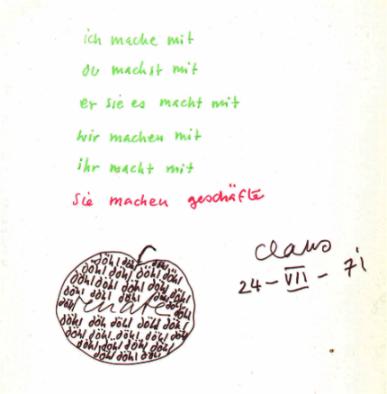 ich mache mit
du machst mit
er sie es macht mit
wir machen mit
ihr macht mit
sie machen geschäfte
claus
24-VII-71
döhl döhl döhl
döhl döhl döhl döhl
döhl döhl döhl döhl döhl
döhl döhl döhl döhl döhl
renate
döhl döhl döhl döhl döhl
döhl döhl döhl döhl döhl
döhl döhl döhl döhl
döhl döhl döhl